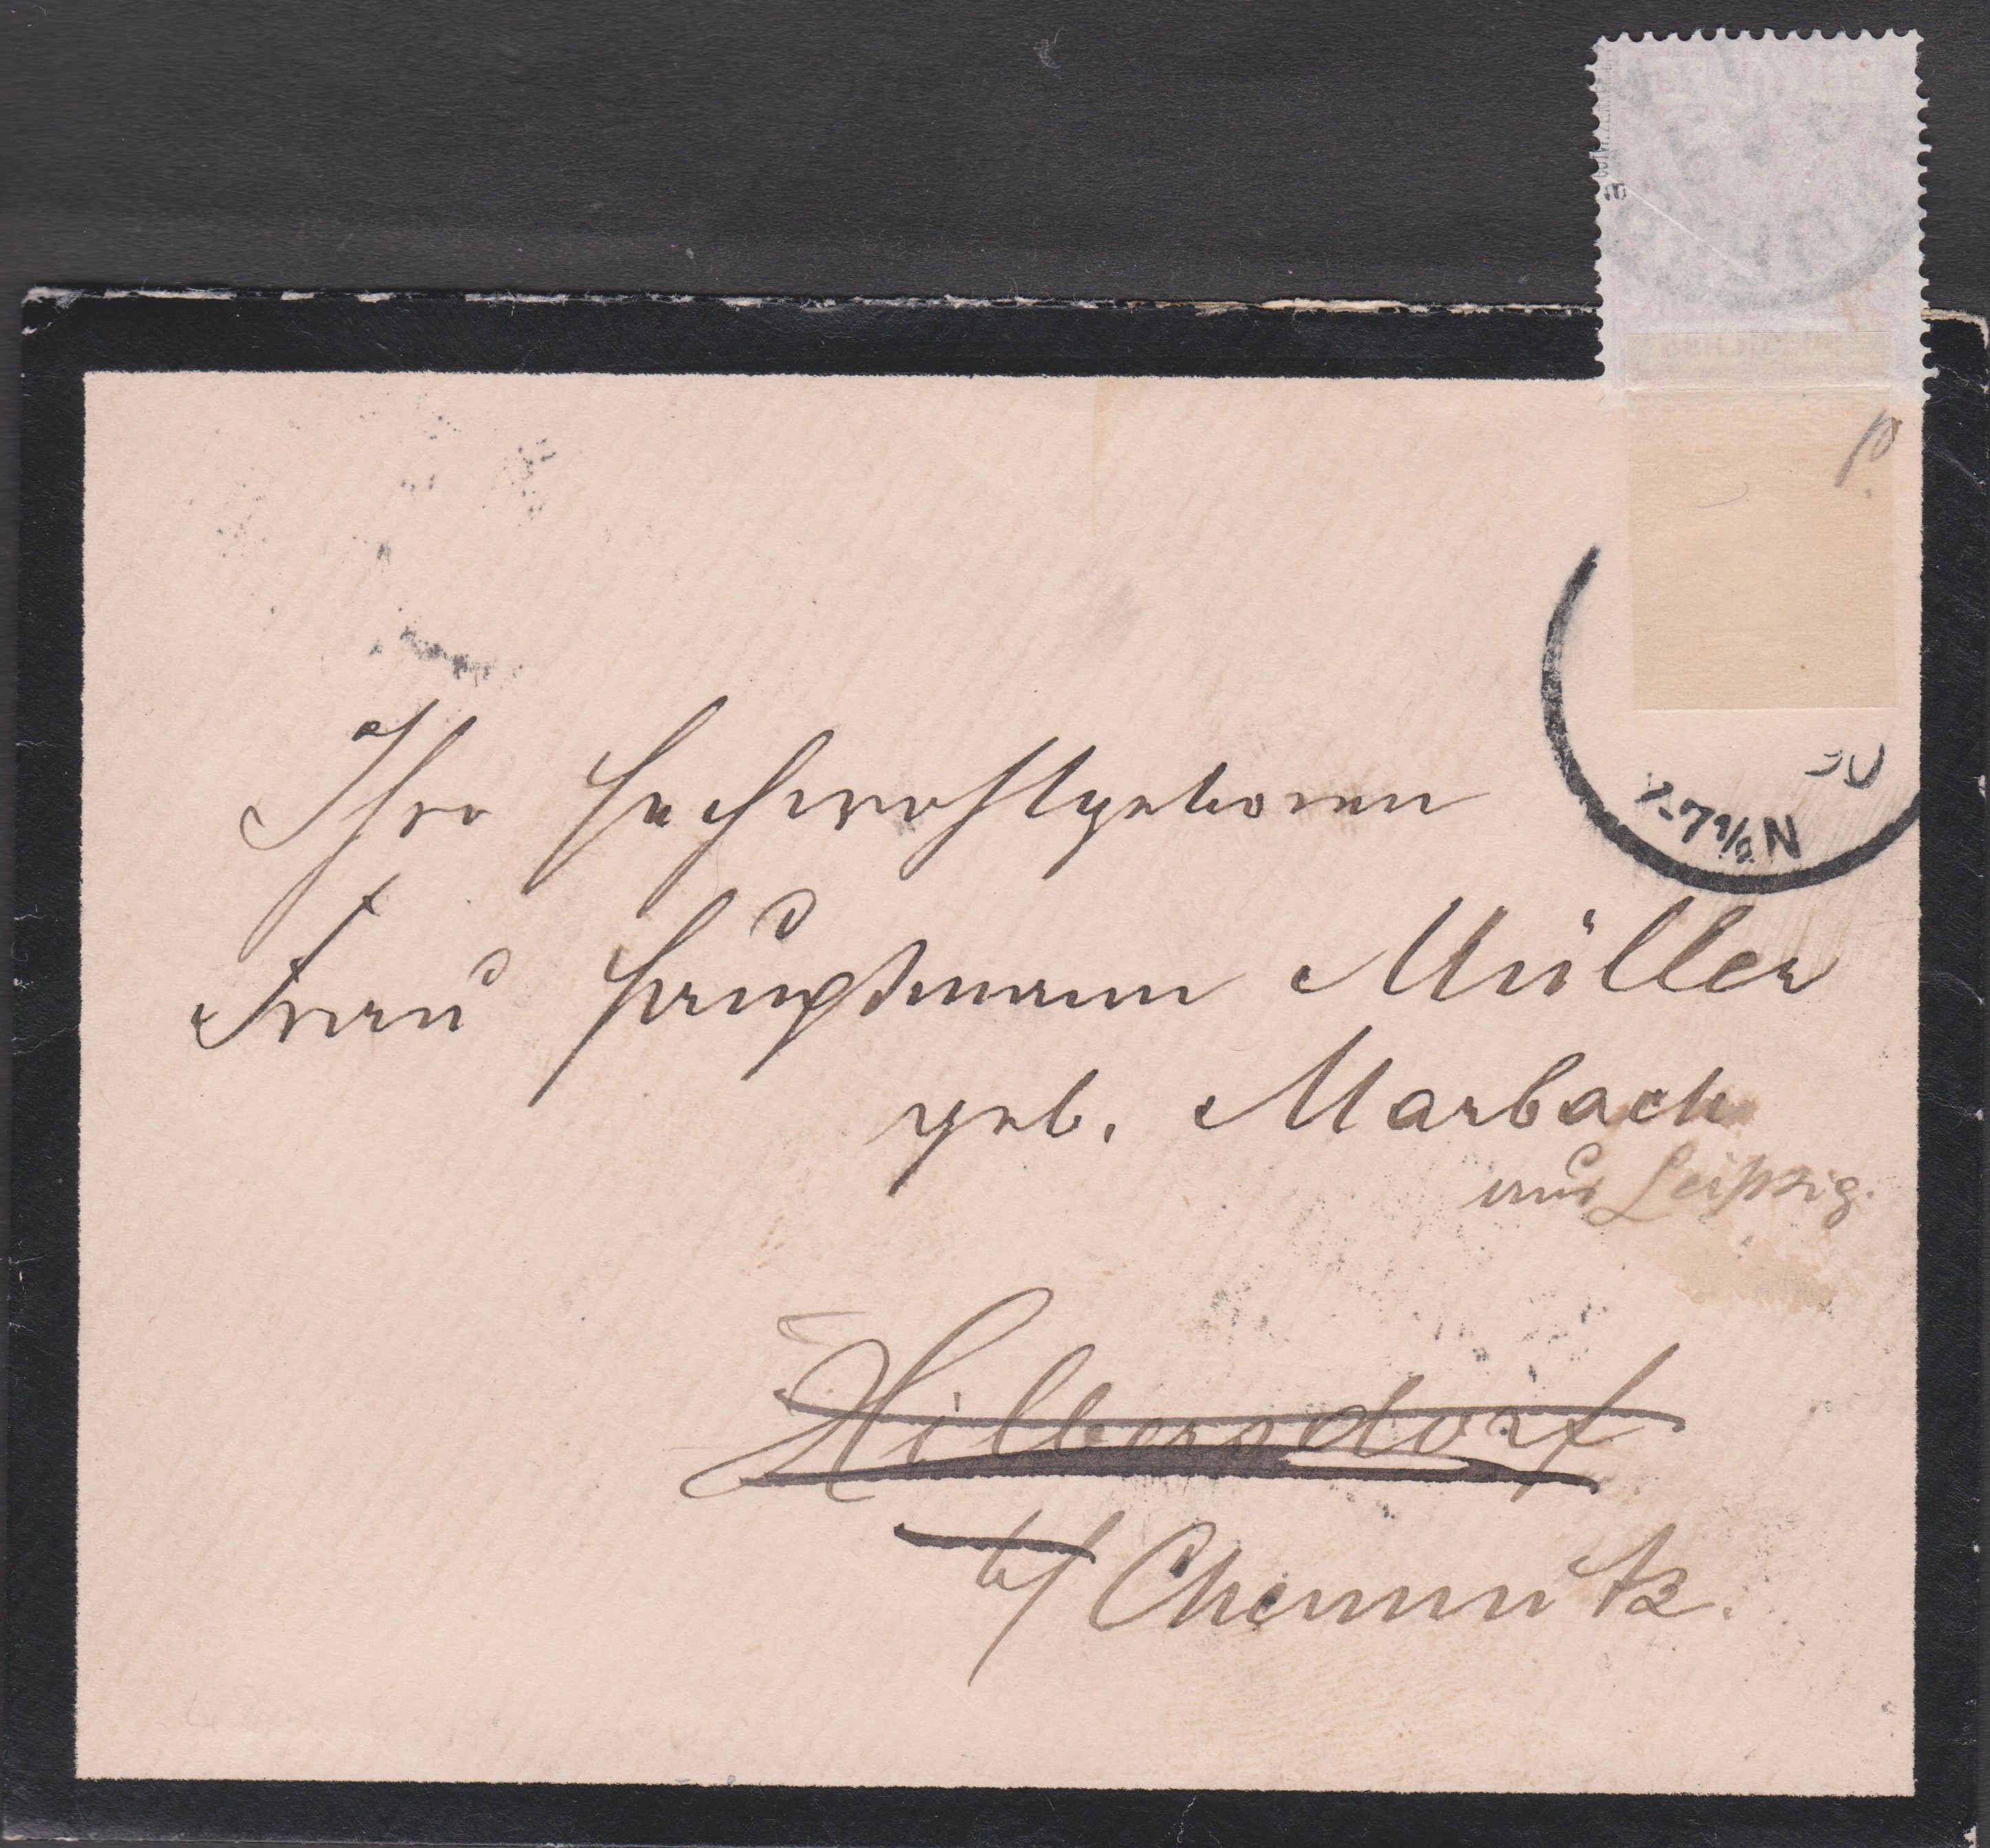 Ihro Hochwohlgeboren
Frau Hauptmann Müller
geb. Marbach
aus Leipzig.
Hilbersdorf
b/ Chemnitz.
-7½N